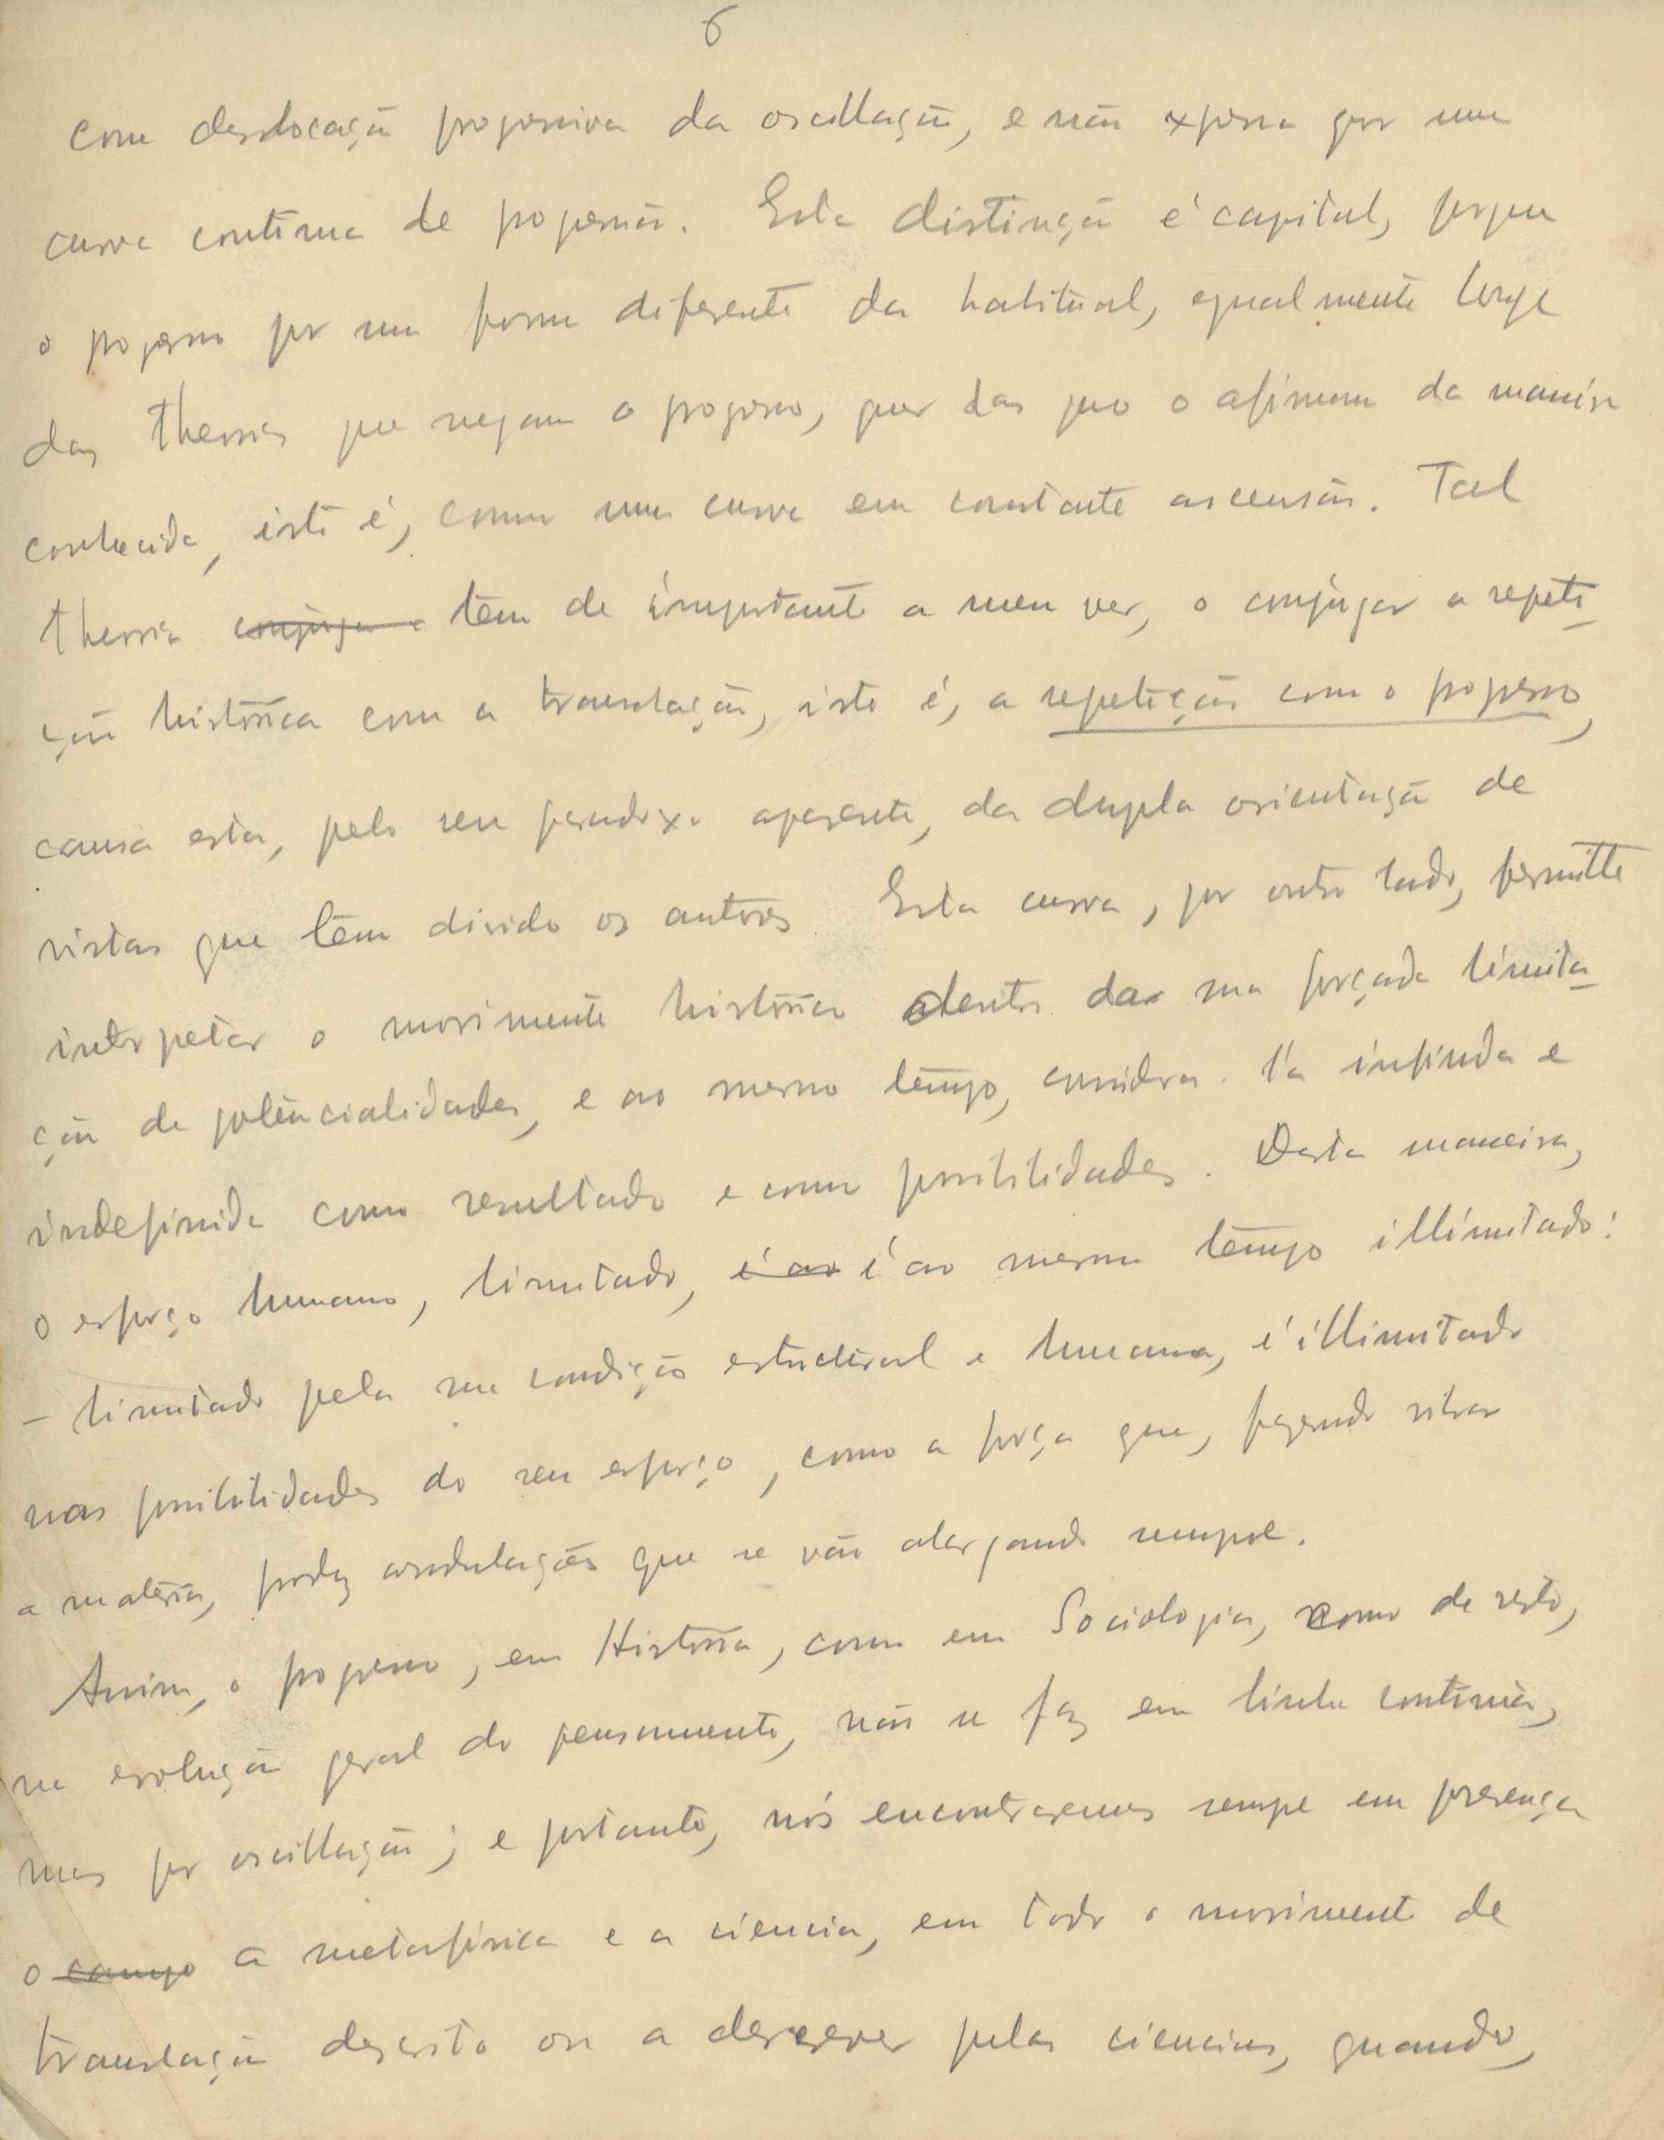 6
com deslocação progressiva da oscillação, e não expressa por uma
curva continua de progressão. Esta distincção é capital, porque
o progresso por uma forma diferente da habitual, egualmente longe
das theorias que negam o progresso, quer das que o afirmam da maneira
conhecida, isto é, como uma curva em constante ascensão. Tal
theoria conjuga a tem de importante a meu ver, o conjugar a repeti-
ção historica com a translação, isto é, a repetição com o progresso,
causa esta, pelo seu paradoxo aparente, da dupla orientação de
vistas que têm divido os autores. Esta curva, por outro lado, permitte
interpretar o movimento historico dentro da sua forçada limita-
ção de potencialidades, e ao mesmo tempo, considera-l'a infinda e
indefinida como resultado e como possibilidades. Desta maneira,
o esforço humano, limitado, é ao é ao mesmo tempo illimitado:
– limitado pela sua condição estructural e humana, é illimitado
nas possibilidades do seu esforço, como a força que, fazendo vibrar
a materia, produz ondulações que se vão alargando sempre.
Assim, o progresso, em Historia, como em Sociologia, como de resto,
na evolução geral do pensamento, não se faz em linha continua,
mas por oscillação; e portanto, nós encontraremos sempre em presença
o campo a metafisica e a ciencia, em todo o movimento de
translação descrito ou a descrever pelas ciencias, quando,